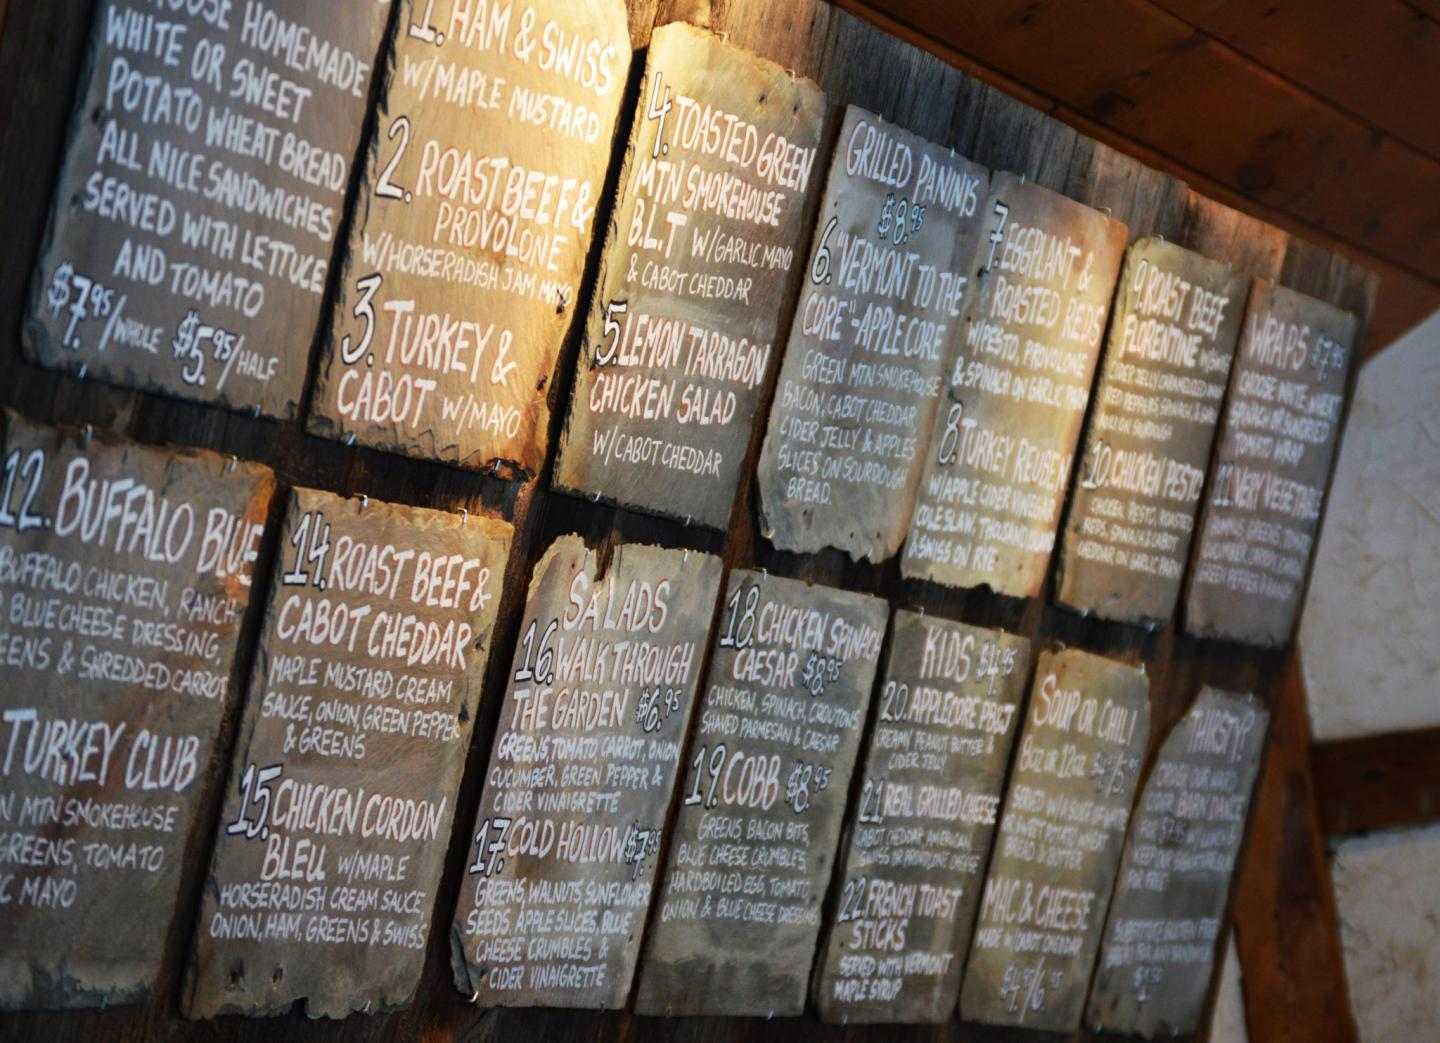 HOMEMADE
WHITE OR SWEET
POTATO WHEAT BREAD.
ALL NICE SANDWICHES
SERVED WITH LETTUCE
AND TOMATO
$7.95/WHOLE $5.95/HALF
1. HAM & SWISS
W/MAPLE MUSTARD
2. ROAST BEEF &
PROVOLONE
W/HORSERADISH JAM MAYO
3. TURKEY &
CABOT W/MAYO
4. TOASTED GREEN
MTN SMOKEHOUSE
B.L.T W/GARLIC MAYO
& CABOT CHEDDAR
5. LEMON TARRAGON
CHICKEN SALAD
W/CABOT CHEDDAR
GRILLED PANINIS
$8.95
6. "VERMONT TO THE
CORE"-APPLE CORE
GREEN MTN SMOKEHOUSE
BACON, CABOT CHEDDAR
CIDER JELLY & APPLES
SLICES ON SOURDOUGH
BREAD.
7. EGGPLANT &
ROASTED REDS
W/PESTO, PROVOLONE
& SPINACH ON GARLIC
8. TURKEY REUBEN
W/APPLE CIDER VINEGAR
COLESLAW, THOUSAND
& SWISS ON RYE
9. ROAST BEEF
FLORENTINE
CIDER JELLY CARAMELIZED
RED PEPPERS, SPINACH &
ON SOURDOUGH
10. CHICKEN PESTO
CHICKEN, PESTO, ROASTED
REDS, SPINACH & CABOT
CHEDDAR ON GARLIC
WRAPS $7.95
CHOOSE WHITE, WHEAT
SPINACH OR SUNDRIED
TOMATO WRAP
11. VERY VEGETABLE
12. BUFFALO BLUE
BUFFALO CHICKEN, RANCH
BLUE CHEESE DRESSING,
& SHREDDED CARROT
TURKEY CLUB
MTN SMOKEHOUSE
GREENS, TOMATO
MAYO
14. ROAST BEEF &
CABOT CHEDDAR
MAPLE MUSTARD CREAM
SAUCE, ONION, GREEN PEPPER
& GREENS
15. CHICKEN CORDON
BLEU W/MAPLE
HORSERADISH CREAM SAUCE,
ONION, HAM, GREENS & SWISS
SALADS
16. WALK THROUGH
THE GARDEN $6.95
GREENS, TOMATO, CARROT, ONION
CUCUMBER, GREEN PEPPER &
CIDER VINAIGRETTE
17. COLD HOLLOW $7.95
GREENS, WALNUTS, SUNFLOWER
SEEDS, APPLE SLICES, BLUE
CHEESE CRUMBLES &
CIDER VINAIGRETTE
18. CHICKEN SPINACH
CAESAR $8.95
CHICKEN, SPINACH, CROUTONS
SHAVED PARMESAN & CAESAR
19. COBB $8.95
GREENS BACON BITS,
BLUE CHEESE CRUMBLES,
HARDBOILED EGG, TOMATO,
ONION & BLUE CHEESE DRESSING
KIDS $4.95
20. APPLECORE PB&J
CREAMY PEANUT BUTTER &
CIDER JELLY
21. REAL GRILLED CHEESE
CABOT CHEDDAR, AMERICAN,
SWISS OR PROVOLONE CHEESE
22. FRENCH TOAST
STICKS
SERVED WITH VERMONT
MAPLE SYRUP
SOUP OR CHILI
8oz OR 12oz
BREAD & BUTTER
MAC & CHEESE
MADE W/CABOT CHEDDAR
THIRSTY?
FOR FREE